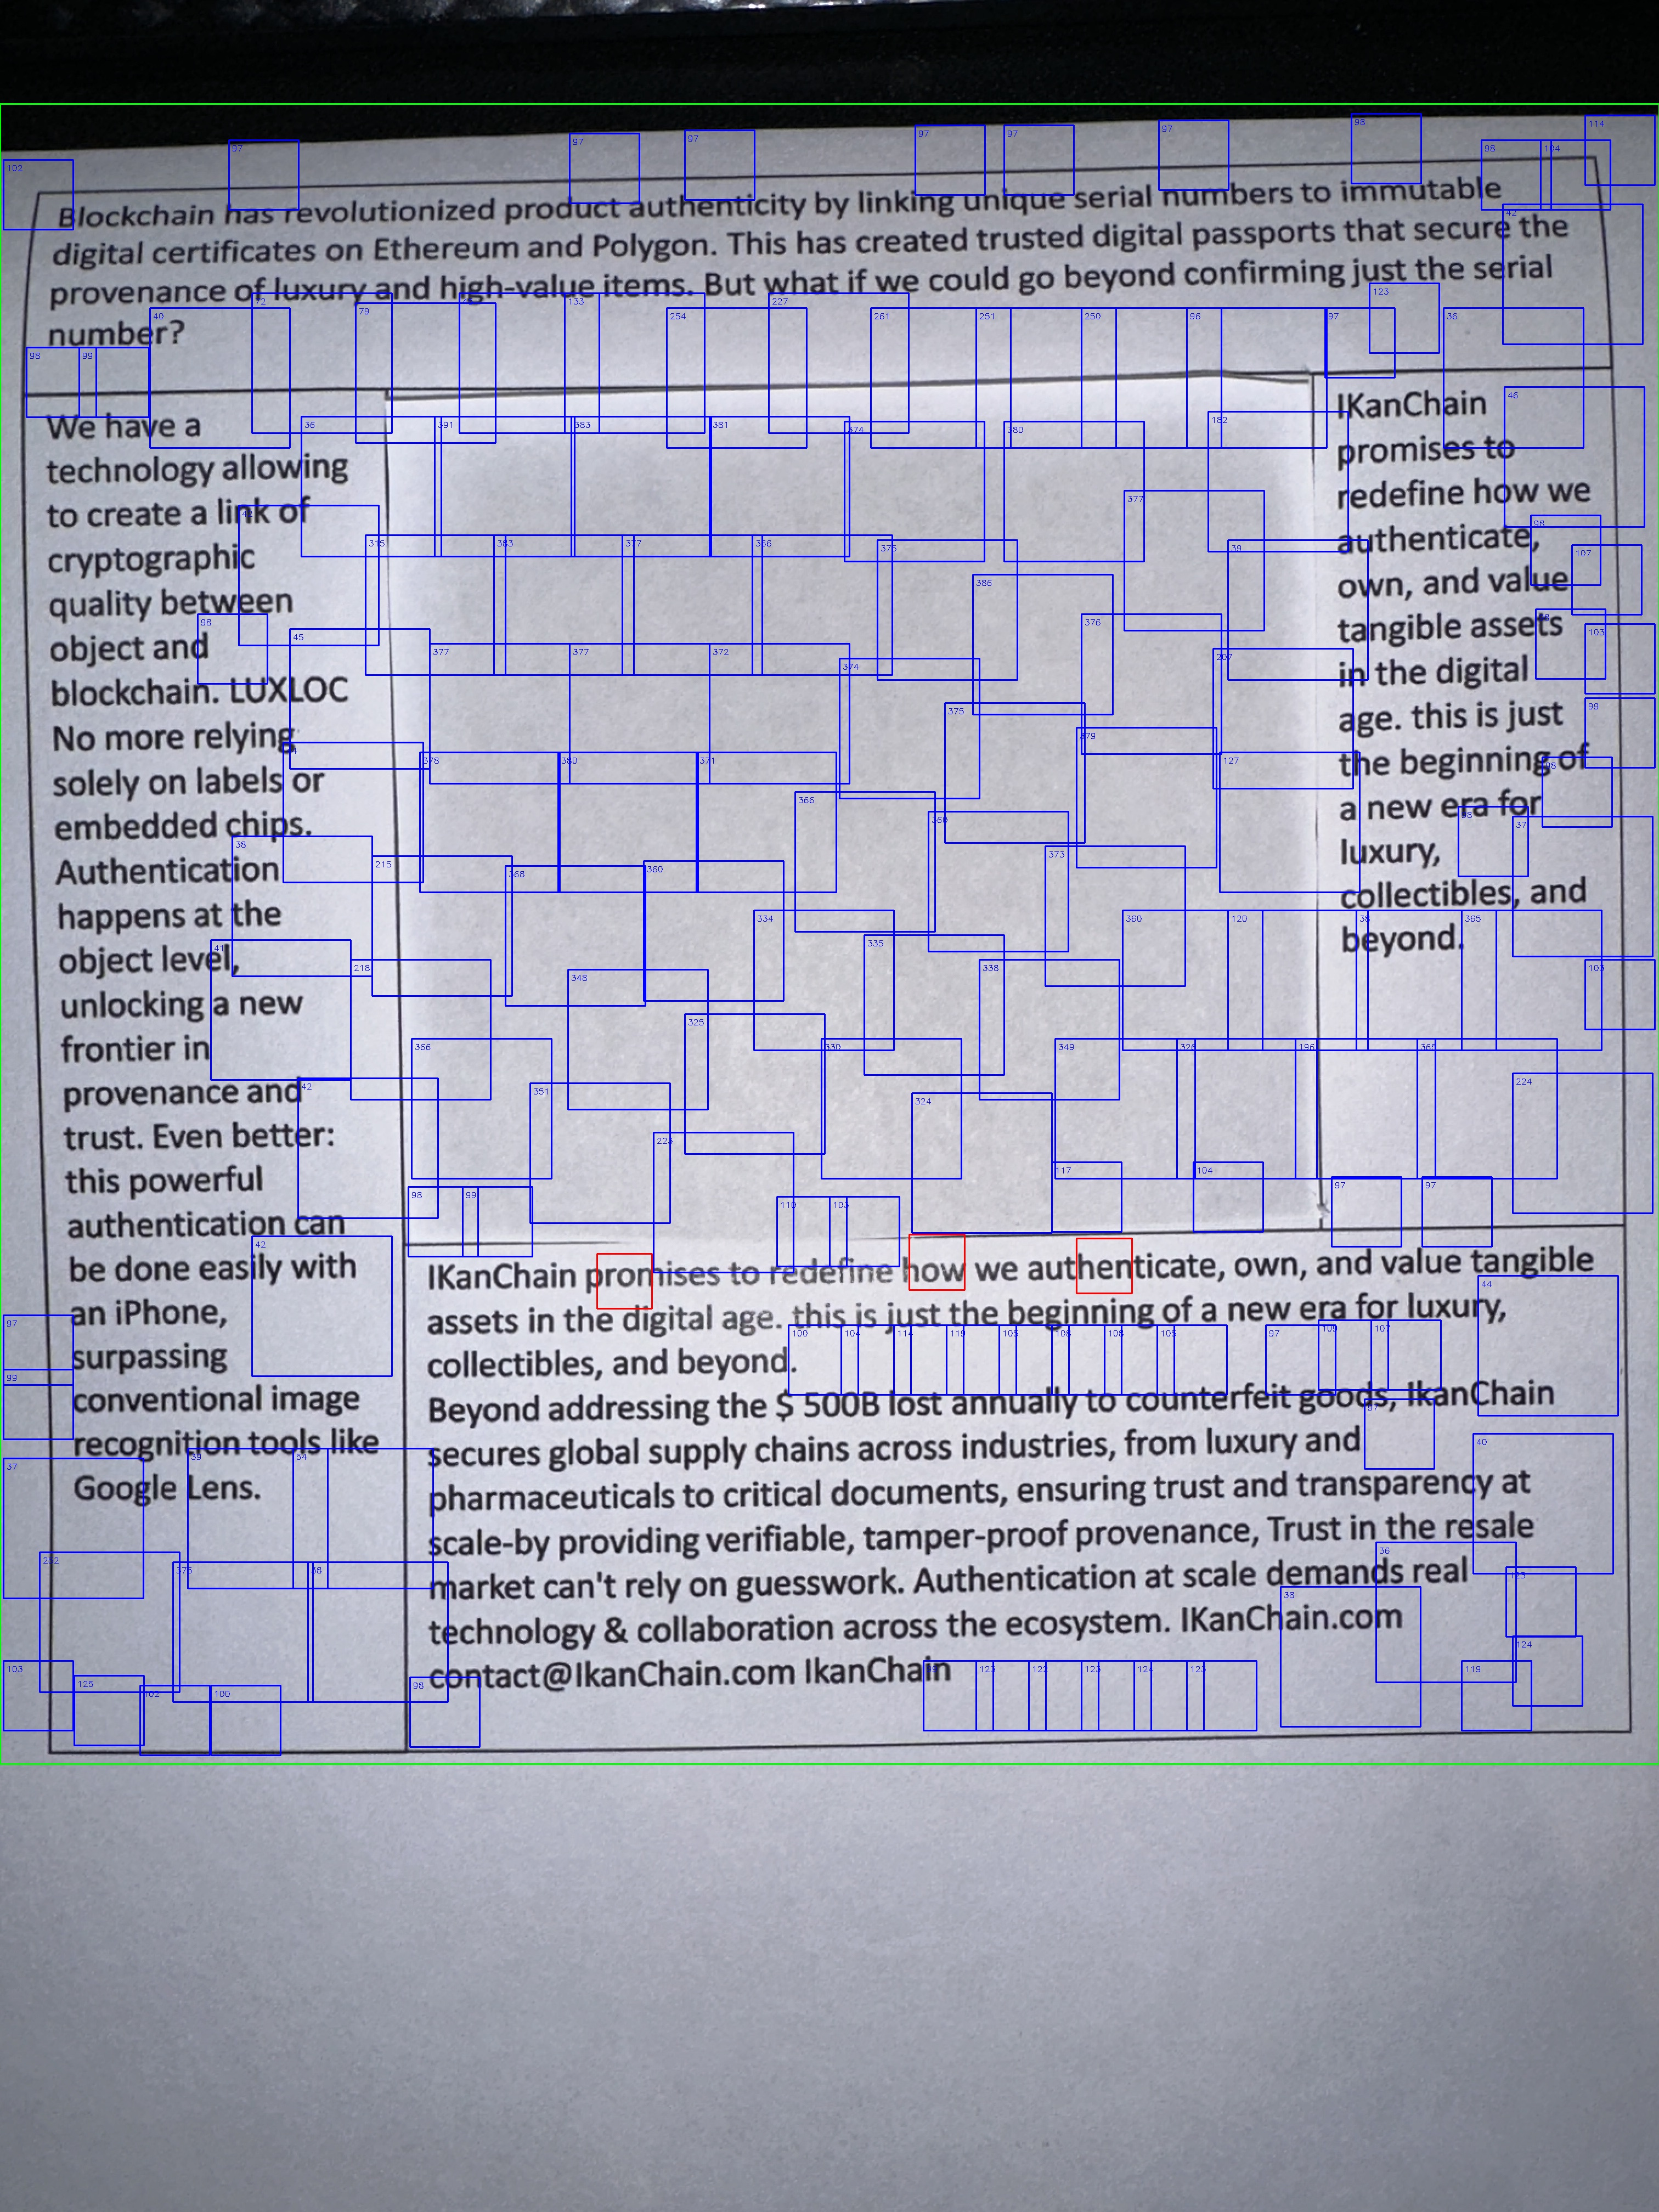 Blockchain has revolutionized product authenticity by linking unique serial numbers to immutable
digital certificates on Ethereum and Polygon. This has created trusted digital passports that secure the
provenance of luxury and high-value items. But what if we could go beyond confirming just the serial
number?
We have a
technology allowing
to create a link of
cryptographic
quality between
object and
blockchain. LUXLOC
No more relying
solely on labels or
embedded chips.
Authentication
happens at the
object level,
unlocking a new
frontier in
provenance and
trust. Even better:
this powerful
authentication can
be done easily with
an iPhone,
surpassing
conventional image
recognition tools like
Google Lens.
IKanChain
promises to
redefine how we
authenticate,
own, and value
tangible assets
in the digital
age. this is just
the beginning of
a new era for
luxury,
collectibles, and
beyond.
IKanChain promises to redefine how we authenticate, own, and value tangible
assets in the digital age. this is just the beginning of a new era for luxury,
collectibles, and beyond.
Beyond addressing the $ 500B lost annually to counterfeit goods, IkanChain
secures global supply chains across industries, from luxury and
pharmaceuticals to critical documents, ensuring trust and transparency at
scale-by providing verifiable, tamper-proof provenance, Trust in the resale
market can't rely on guesswork. Authentication at scale demands real
technology & collaboration across the ecosystem. IKanChain.com
contact@IkanChain.com IkanChain